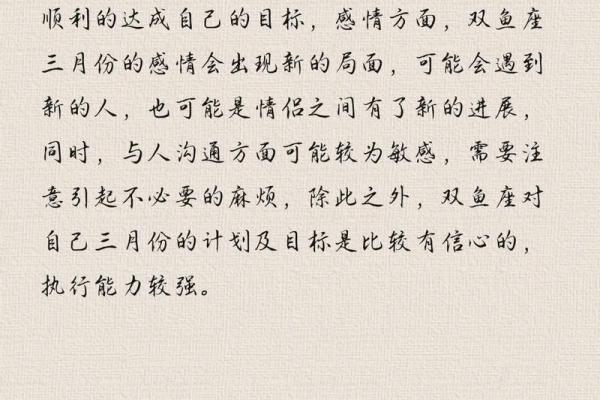 顺利的达成自己的目标，感情方面，双鱼座
三月份的感情会出现新的局面，可能会遇到
新的人，也可能是情侣之间有了新的进展，
同时，与人沟通方面可能较为敏感，需要注
意引起不必要的麻烦，除此之外，双鱼座对
自己三月份的计划及目标是比较有信心的，
执行能力较强。